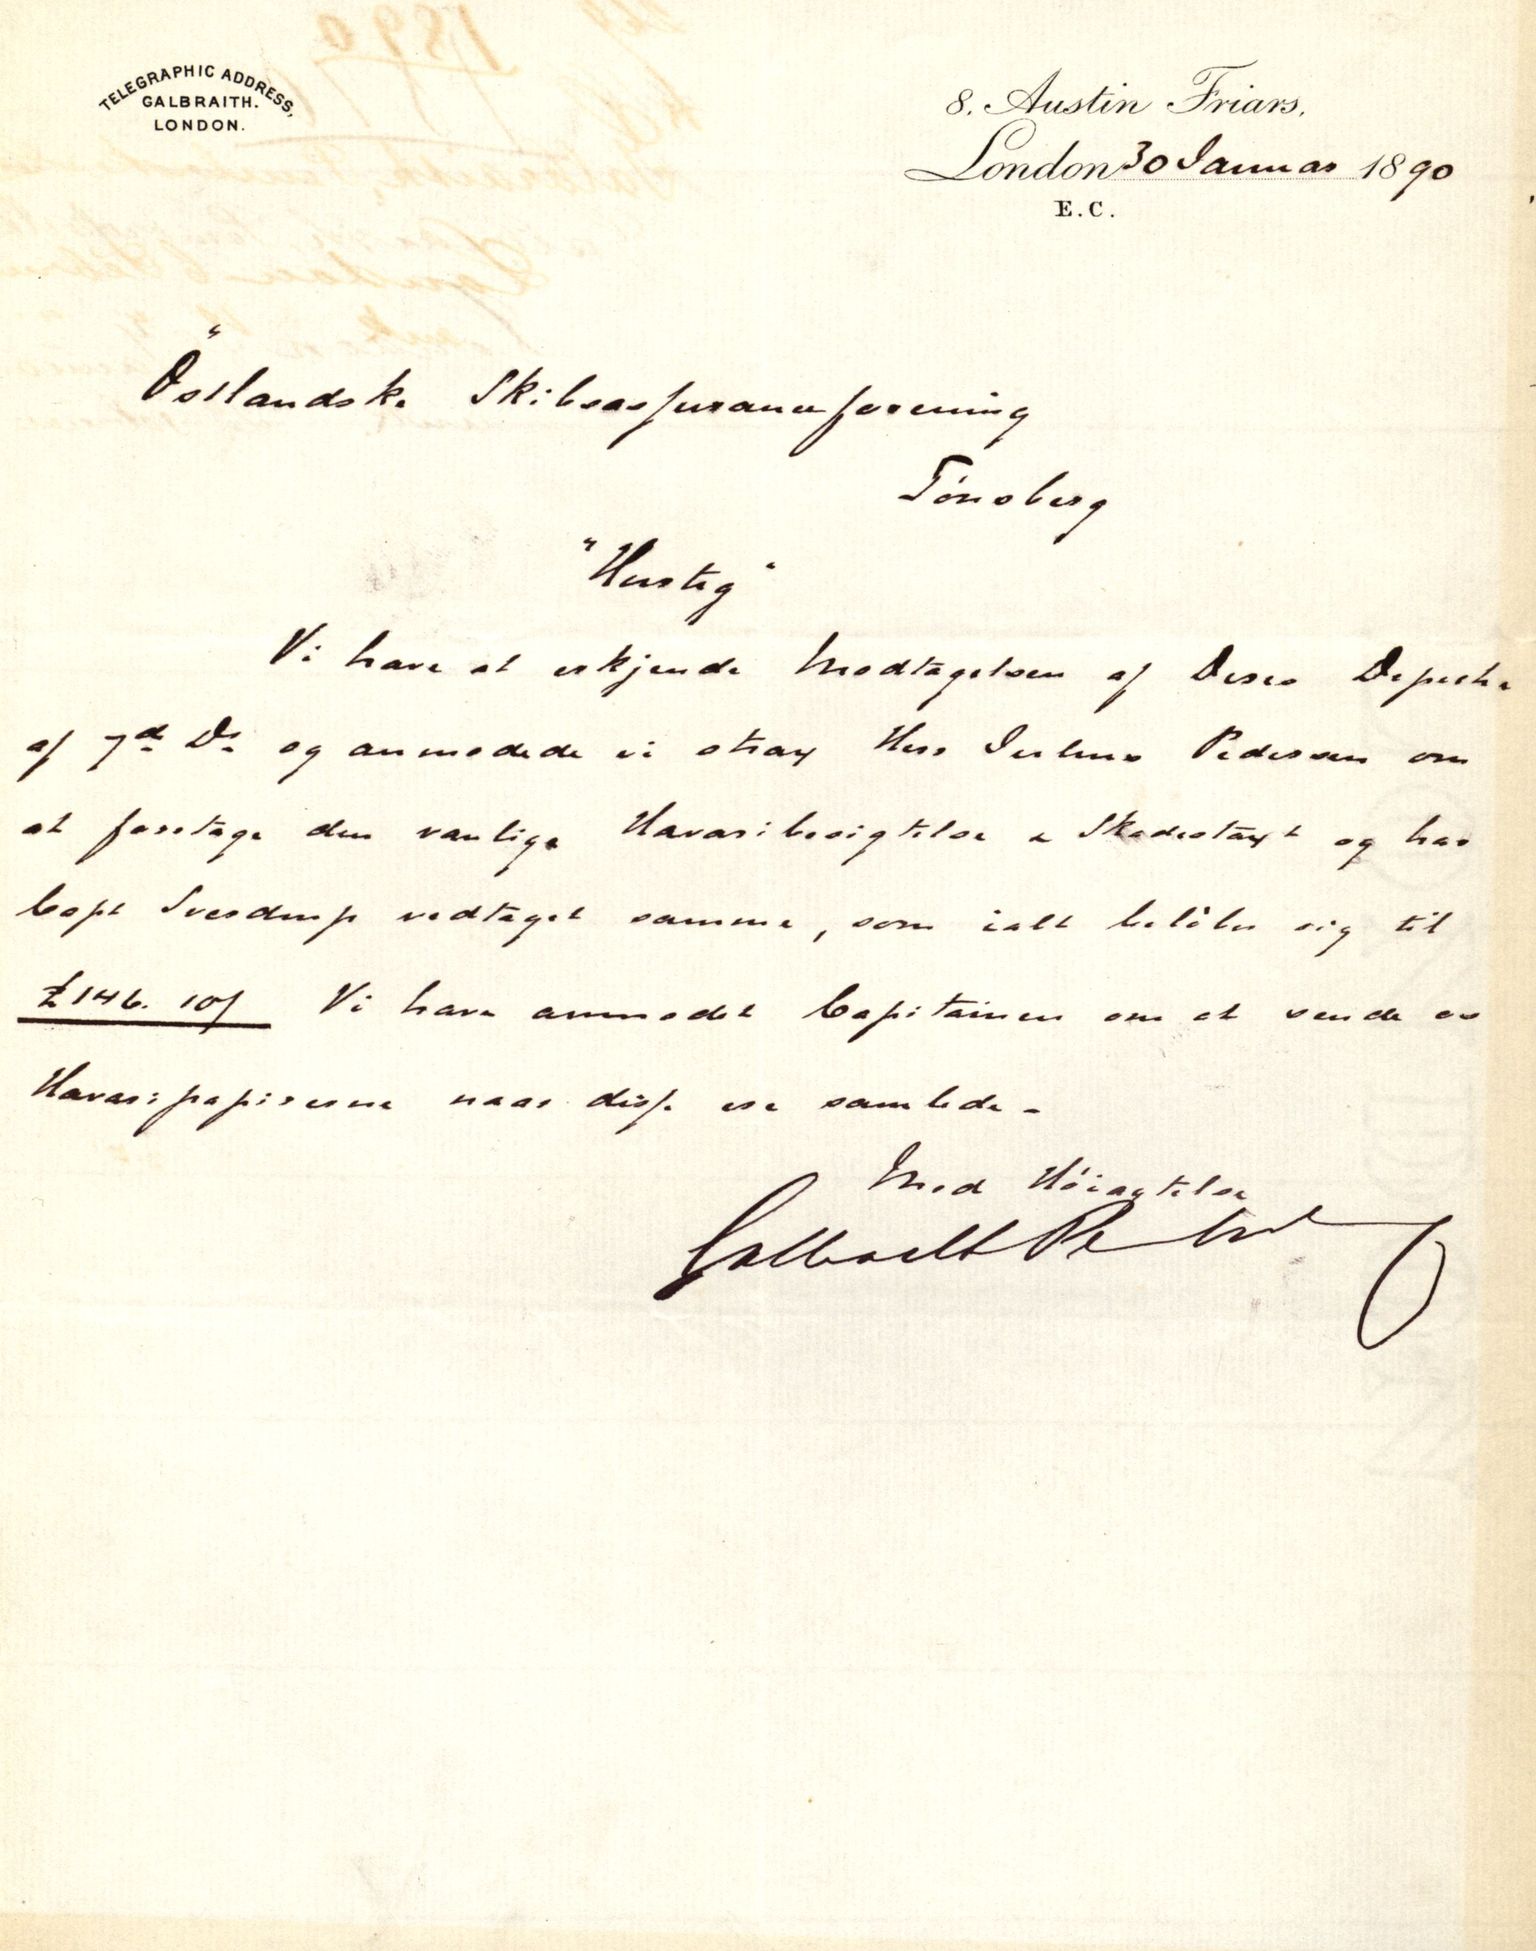 TELEGRAPHIC ADDRESS,
GALBRAITH.
LONDON.
8, Austin Friars,
London 30 Januar 1890
E.C.
"Östlandske Skibsassuranceforening
Tönsberg
"Hurtig"
Vi have at erkjende Modtagelsen af Deres Depeche
af 7de Ds og anmodede vi strax Herr Julius Pedersen om
at foretage den vanlige Havaribesigtelse & Skadestaxt og har
Capt Sverdrup vedtaget samme, som ialt belöber sig til
£146. 10/ Vi have anmodet Capitainen om at sende os
Havaripapirerne naar disp. ere samlede.
Med Höiagtelse
Galbraith